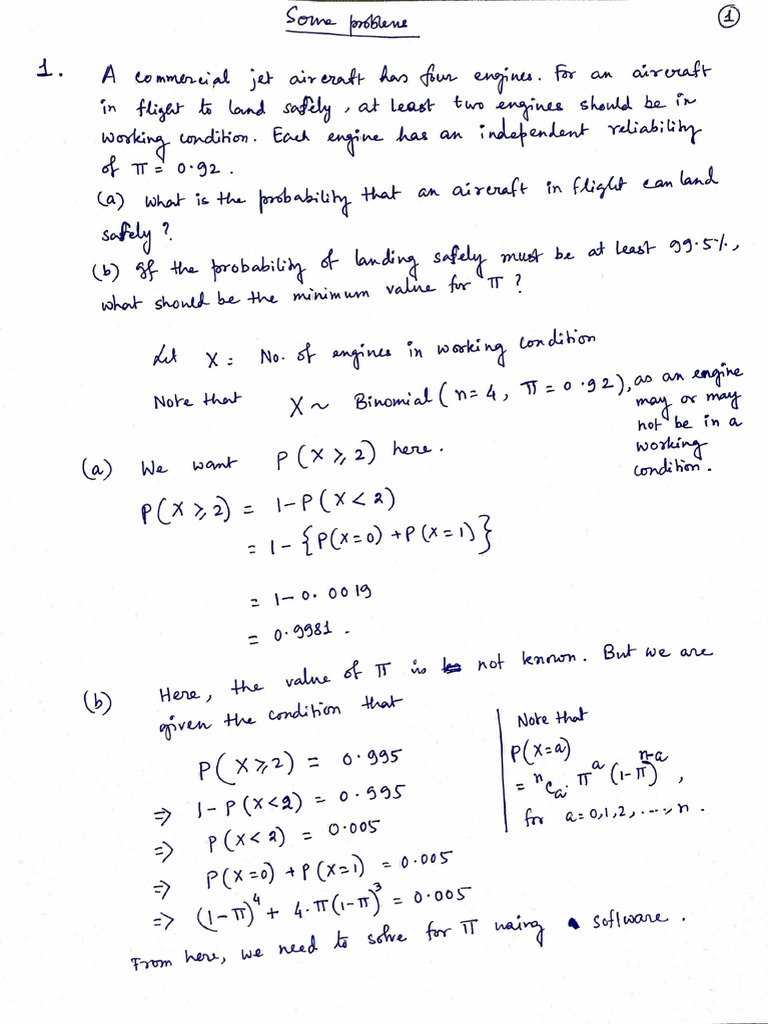 Some problems
①
1. A commercial jet aircraft has four engines. For an aircraft
in flight to land safely, at least two engines should be in
working condition. Each engine has an independent reliability
of π = 0.92.
(a) What is the probability that an aircraft in flight can land
safely?
(b) If the probability of landing safely must be at least 99.5%,
what should be the minimum value for π?
Let X = No. of engines in working condition
Note that X ~ Binomial (n = 4, π = 0.92), as an engine
may or may
not be in a
working
condition.
(a) We want P(X ≥ 2) here.
P(X ≥ 2) = 1 - P(X < 2)
= 1 - {P(X=0) + P(X=1)}
= 1 - 0.0019
= 0.9981.
(b) Here, the value of π is not known. But we are
given the condition that
P(X ≥ 2) = 0.995
⇒ 1 - P(X < 2) = 0.995
⇒ P(X < 2) = 0.005
⇒ P(X=0) + P(X=1) = 0.005
⇒ (1-π)⁴ + 4·π(1-π)³ = 0.005
Note that
P(X=a)
= ⁿCₐ. πᵃ (1-π)ⁿ⁻ᵃ,
for a = 0,1,2, ...., n.
From here, we need to solve for π using software.